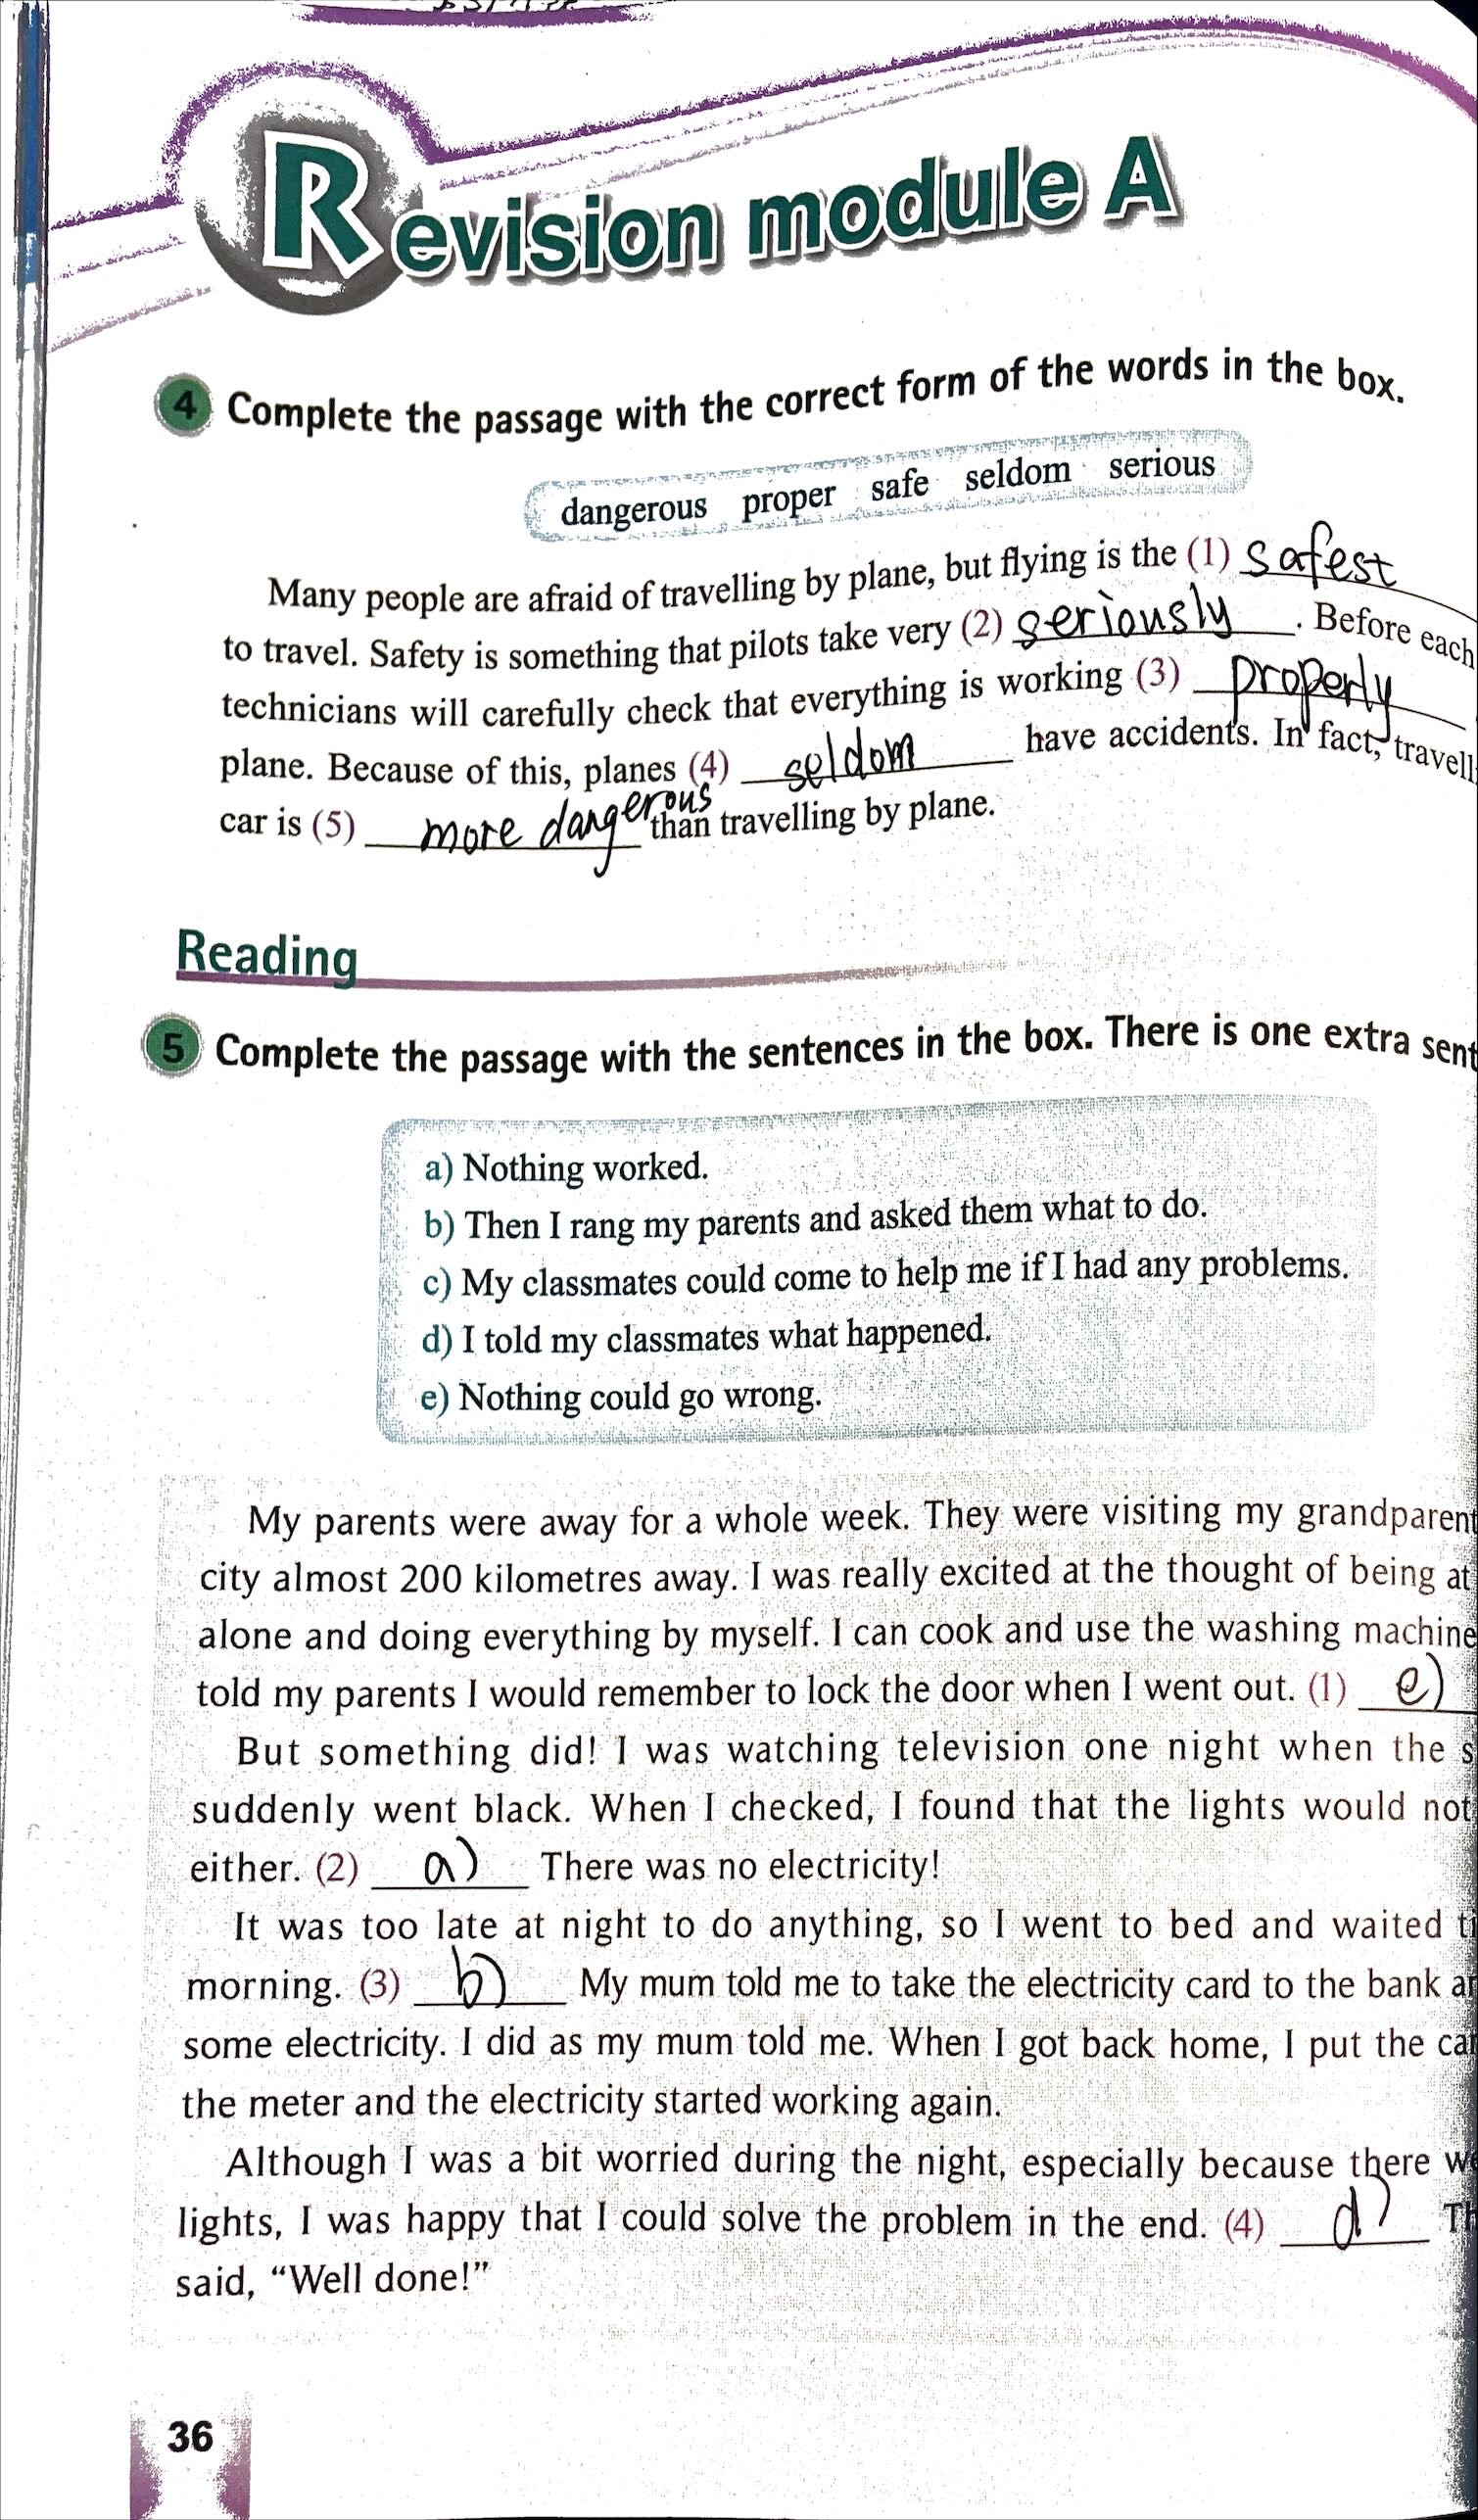 Revision module A
4 Complete the passage with the correct form of the words in the box.
dangerous proper safe seldom serious
Many people are afraid of travelling by plane, but flying is the (1) safest
to travel. Safety is something that pilots take very (2) seriously. Before each
technicians will carefully check that everything is working (3) properly
plane. Because of this, planes (4) seldom have accidents. In fact, travell
car is (5) more dangerous than travelling by plane.
Reading
5 Complete the passage with the sentences in the box. There is one extra sent
a) Nothing worked.
b) Then I rang my parents and asked them what to do.
c) My classmates could come to help me if I had any problems.
d) I told my classmates what happened.
e) Nothing could go wrong.
My parents were away for a whole week. They were visiting my grandparent
city almost 200 kilometres away. I was really excited at the thought of being at
alone and doing everything by myself. I can cook and use the washing machine
told my parents I would remember to lock the door when I went out. (1) e)
But something did! I was watching television one night when the s
suddenly went black. When I checked, I found that the lights would not
either. (2) a) There was no electricity!
It was too late at night to do anything, so I went to bed and waited ti
morning. (3) b) My mum told me to take the electricity card to the bank a
some electricity. I did as my mum told me. When I got back home, I put the car
the meter and the electricity started working again.
Although I was a bit worried during the night, especially because there we
lights, I was happy that I could solve the problem in the end. (4) d) Th
said, “Well done!”
36